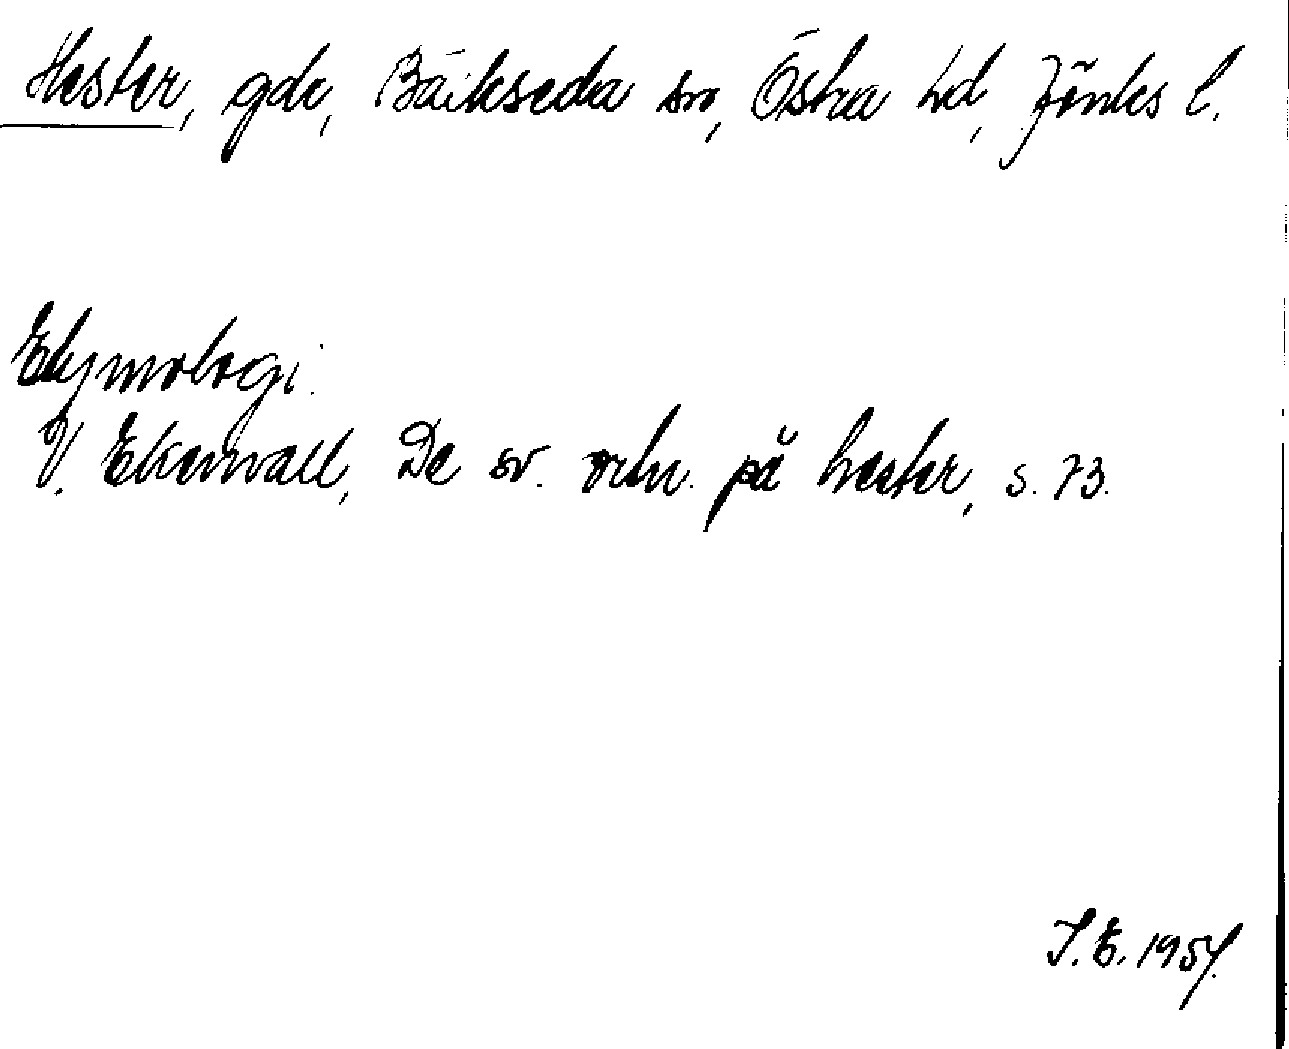 Hester, gde, Bäckseda sn, Östra hd, Jönks l.
Etymologi.
V. Ekenvall, De sv. ortn. på hester, s. 73.
I. E. 1957.